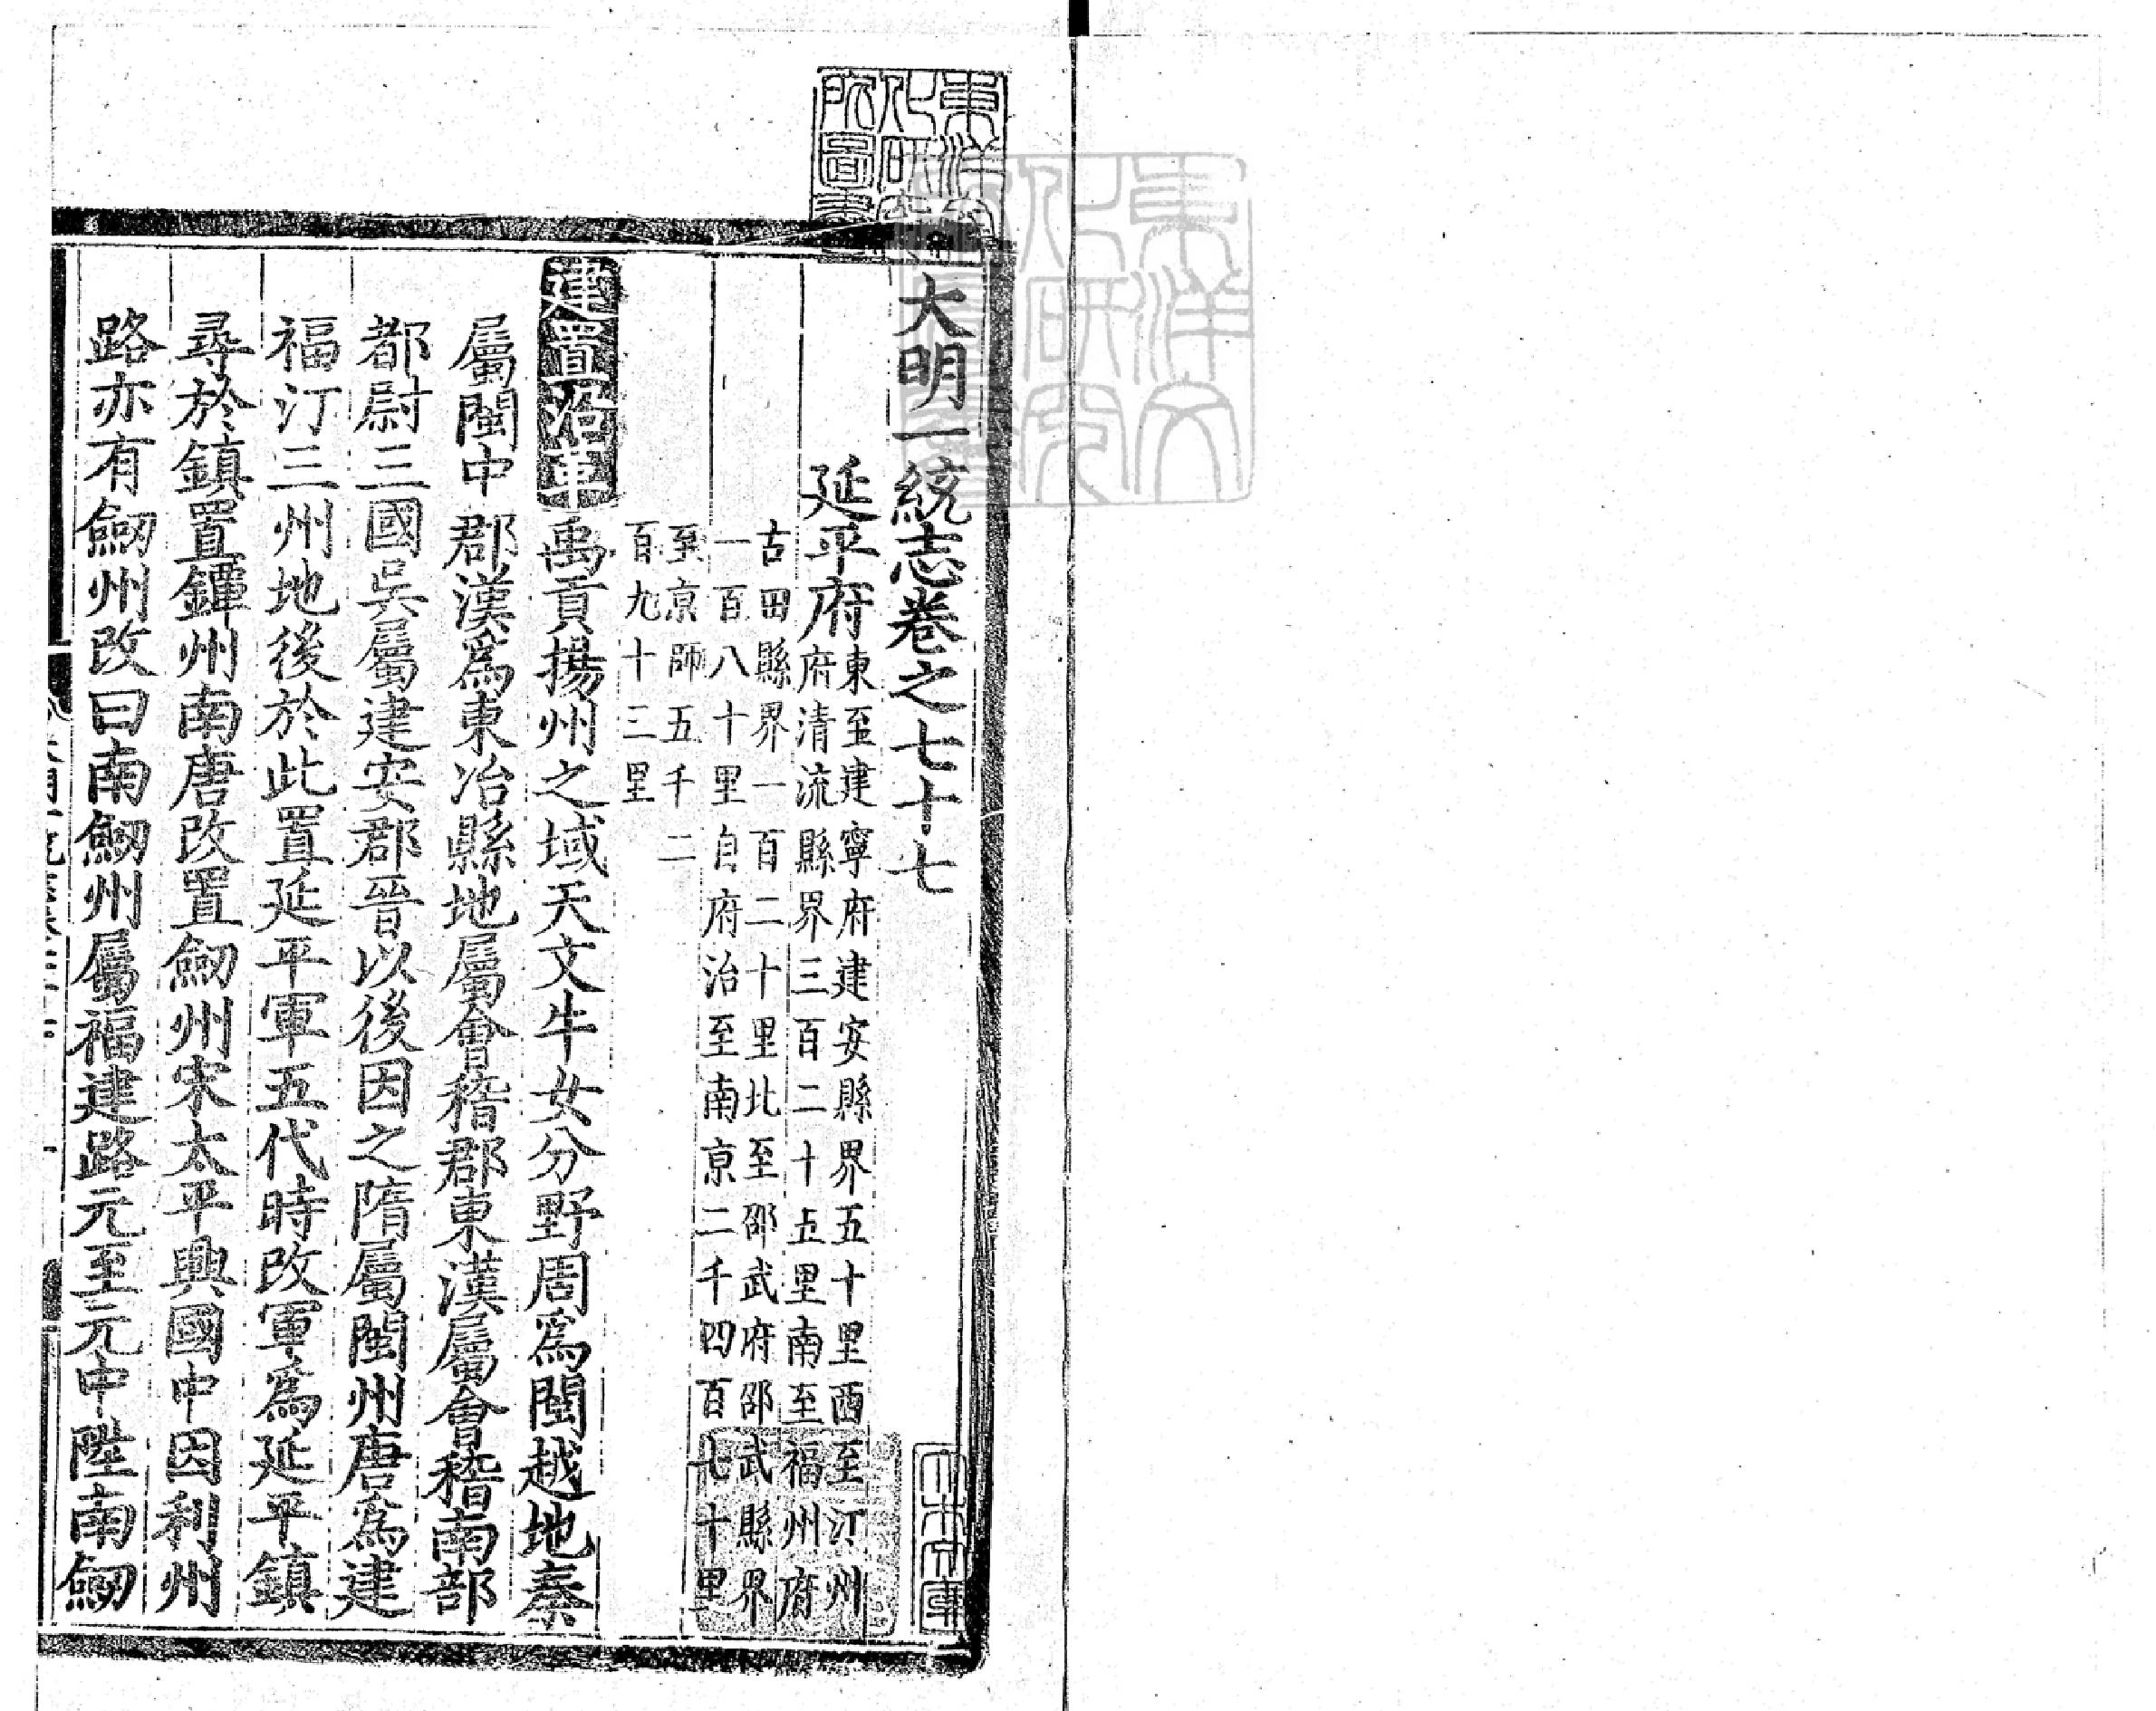 大明一統志卷之七十七
延平府東至建寧府建安縣界五十里西至汀州
府清流縣界三百二十五里南至福州府
古田縣界一百二十里北至邵武府邵武縣界
一百八十里自府治至南京二千四百七十里
至京師五千二
百九十三里
建置沿革禹貢揚州之域天文牛女分野周為閩越地秦
屬閩中郡漢為東冶縣地屬會稽郡東漢屬會稽南部
都尉三國吳屬建安郡晉以後因之隋屬閩州唐為建
福汀三州地後於此置延平軍五代時改軍為延平鎮
尋於鎮置鐔州南唐改置劒州宋太平興國中因利州
路亦有劒州改曰南劒州屬福建路元至元中陞南劒
東洋文化研究所圖書
大木文庫